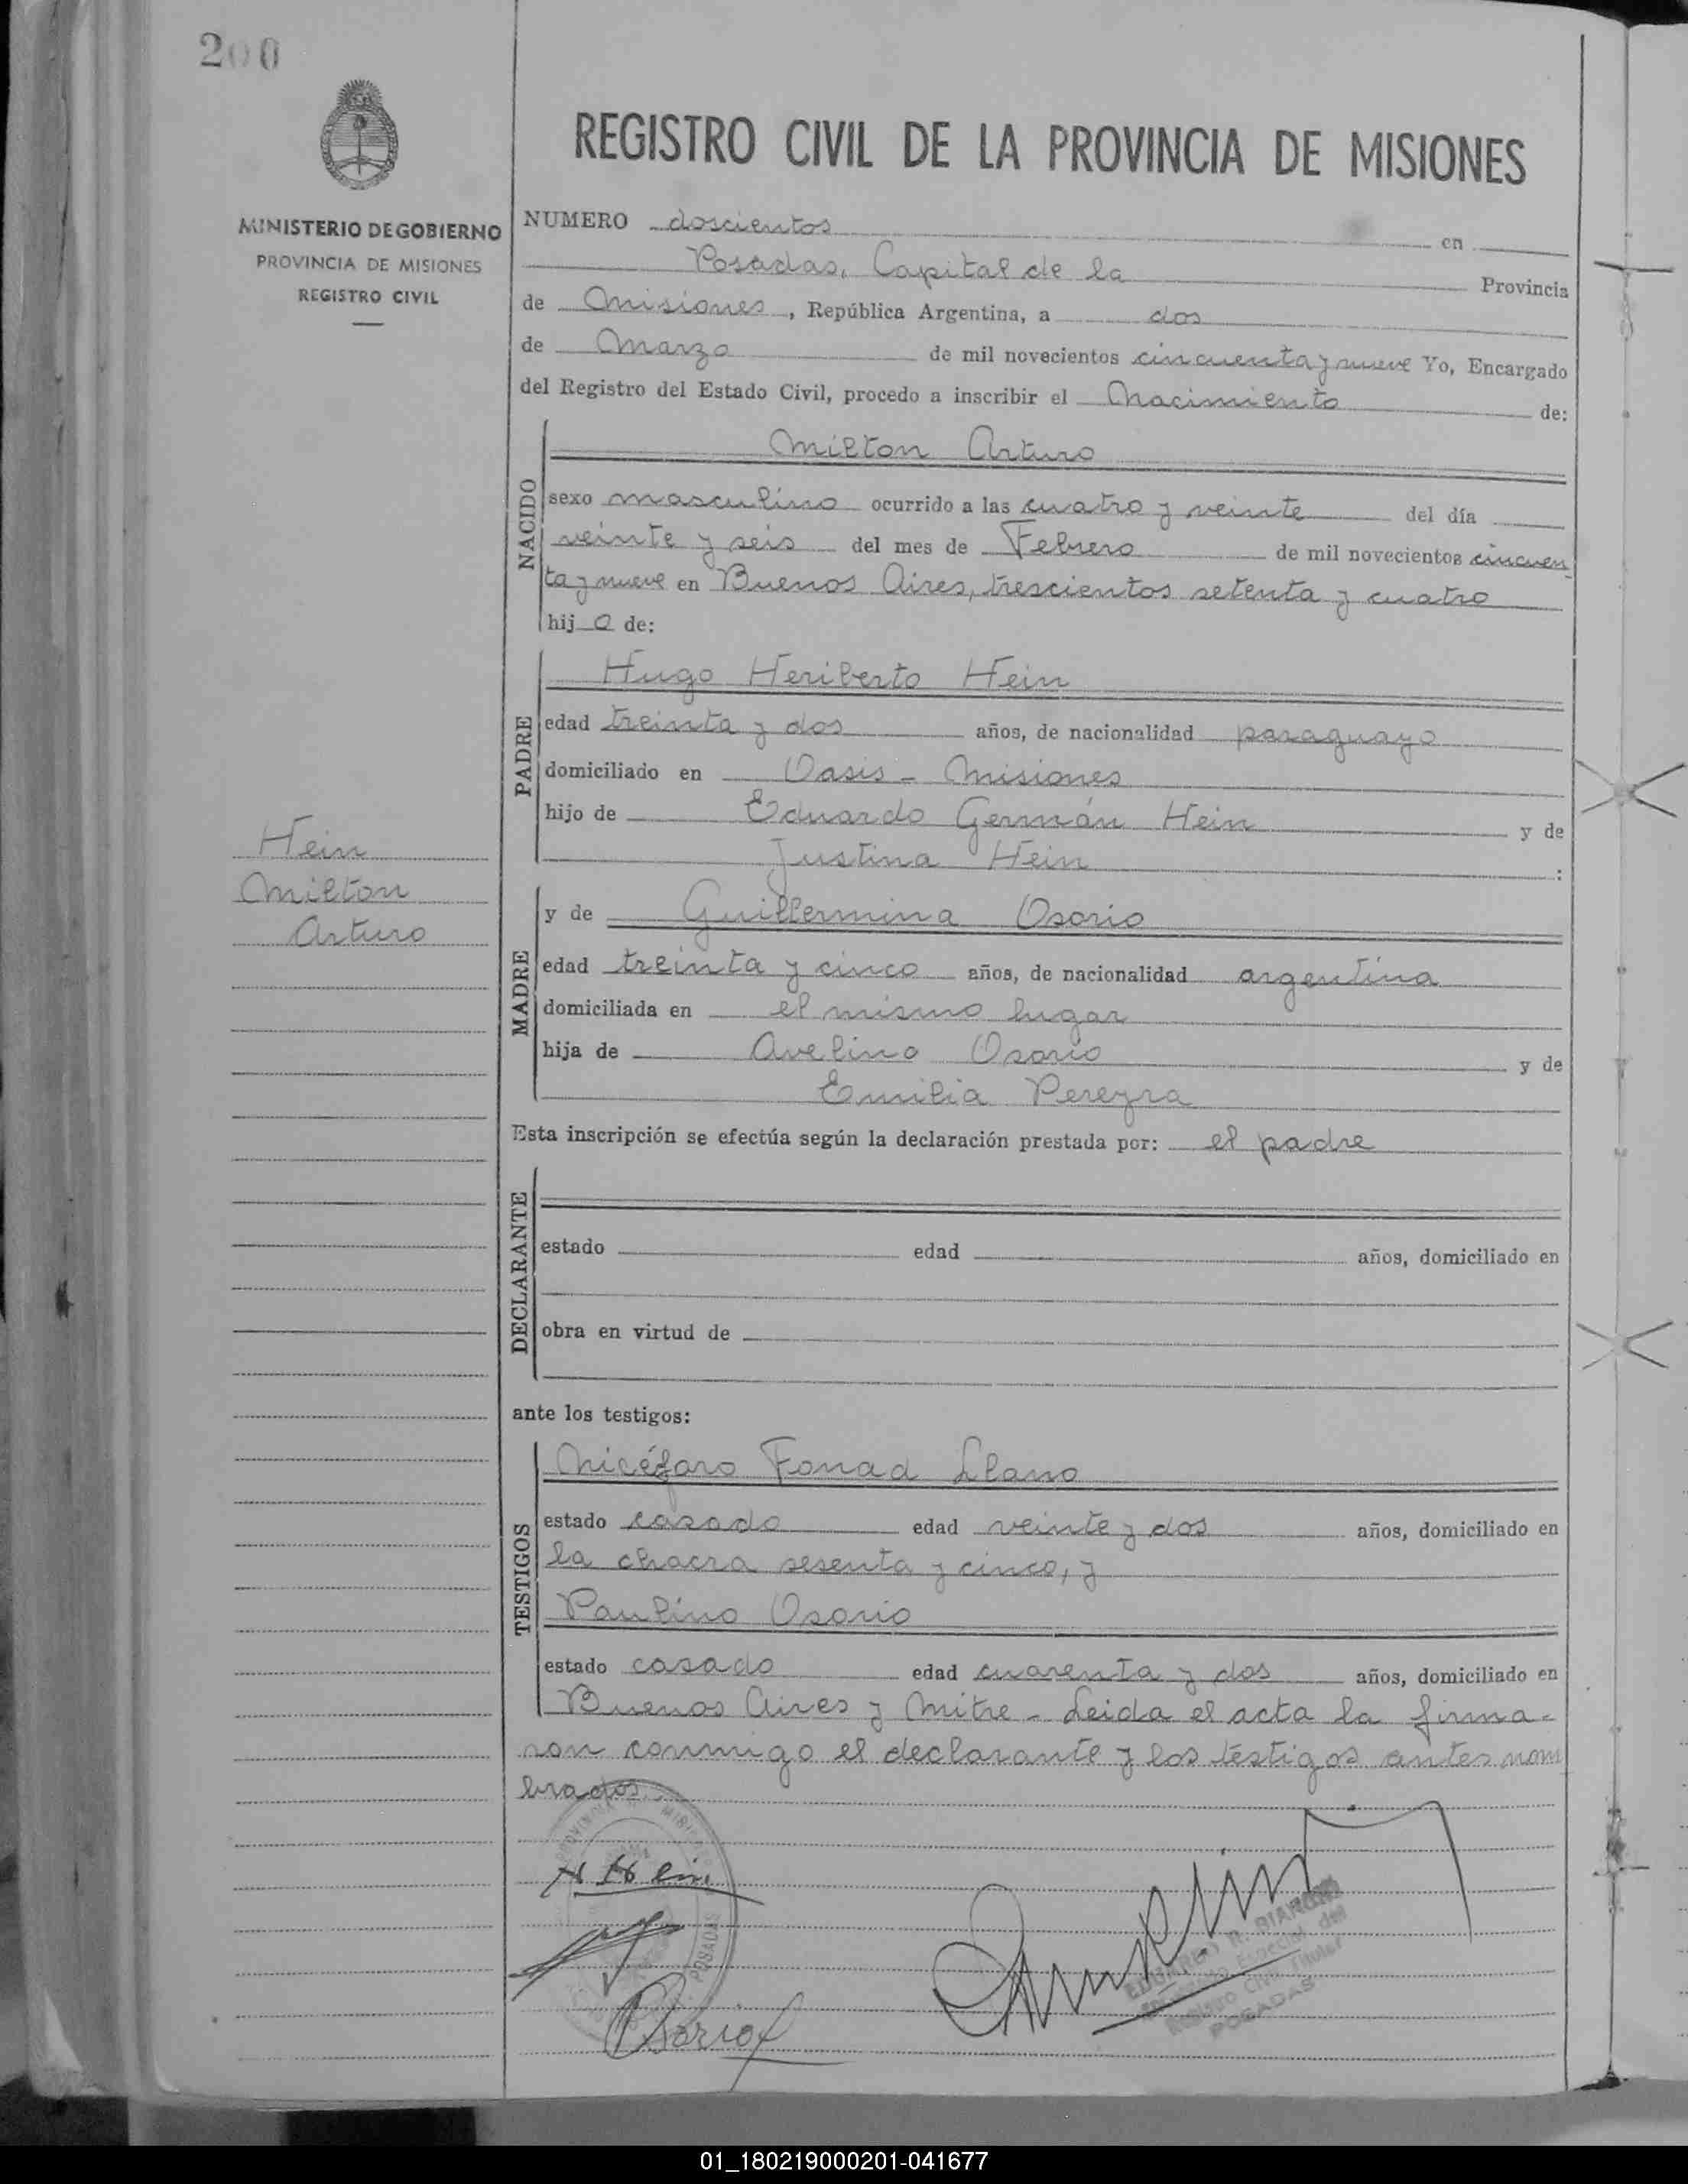 200
REGISTRO CIVIL DE LA PROVINCIA DE MISIONES
MINISTERIO DE GOBIERNO
PROVINCIA DE MISIONES
REGISTRO CIVIL
NUMERO doscientos en
Posadas, Capital de la Provincia
de Misiones, República Argentina, a dos
de Marzo de mil novecientos cincuenta y nueve Yo, Encargado
del Registro del Estado Civil, procedo a inscribir el Nacimiento de:
NACIDO
Milton Arturo
sexo masculino ocurrido a las cuatro y veinte del día
veinte y seis del mes de Febrero de mil novecientos cincuen
ta y nueve en Buenos Aires, trescientos setenta y cuatro
hij o de:
PADRE
Hugo Heriberto Hein
edad treinta y dos años, de nacionalidad paraguayo
domiciliado en Oasis - Misiones
hijo de Eduardo Germán Hein y de
Justina Hein :
Hein
Milton
Arturo
MADRE
y de Guillermina Osorio
edad treinta y cinco años, de nacionalidad argentina
domiciliada en el mismo lugar
hija de Avelino Osorio y de
Emilia Pereyra
Esta inscripción se efectúa según la declaración prestada por: el padre
DECLARANTE
estado edad años, domiciliado en
obra en virtud de
ante los testigos:
TESTIGOS
Nicéforo Llano
estado casado edad veinte y dos años, domiciliado en
la chacra sesenta y cinco, y
Paulino Osorio
estado casado edad cuarenta y dos años, domiciliado en
Buenos Aires y Mitre - Leida el acta la firma-
ron conmigo el declarante y los testigos antes nom
brados.
PROVINCIA
POSADAS
H Hein
POsorio
POSADAS
01_180219000201-041677